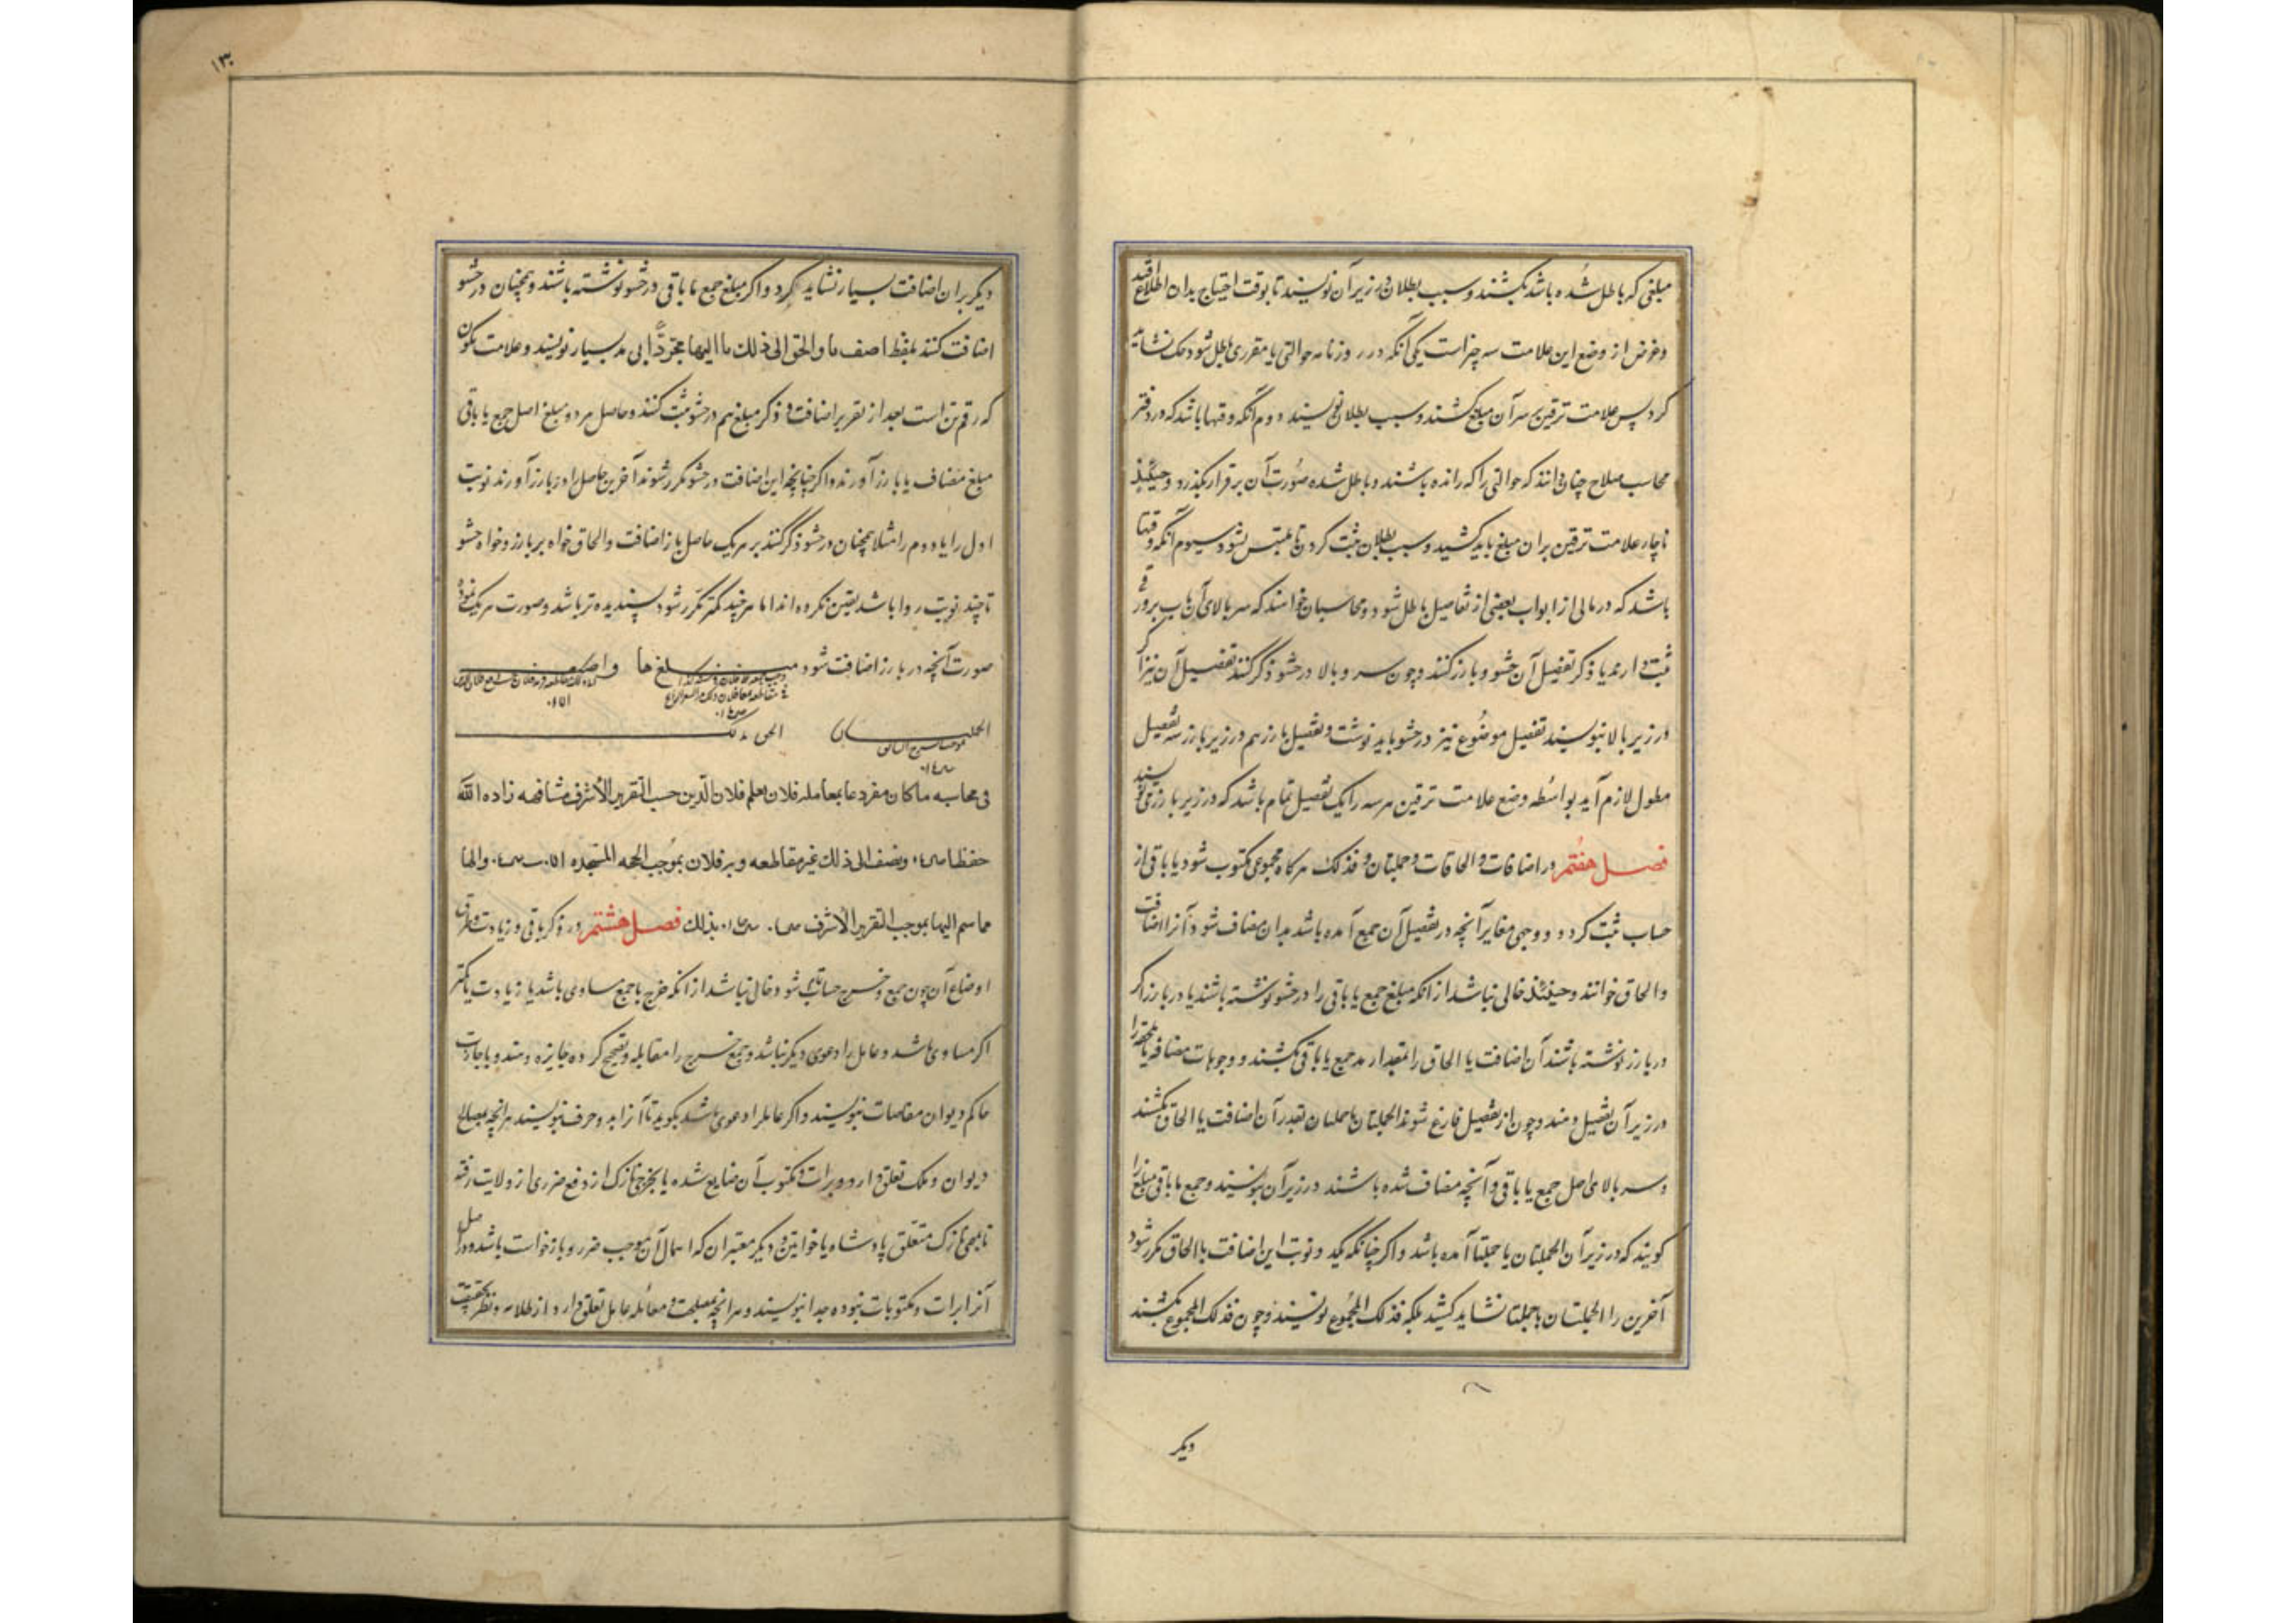 مبلغی که باطل شده باشد بکشند و سبب بطلان در زیر آن نویسند تا بوقت احتیاج بدان اطلاع افتد
و غرض از وضع این علامت سه چیز است یکی آنکه در روزنامه حوالتی یا مقرری باطل شود حک نشاید
کرد پس علامت ترقین بر سر آن مبلغ کشند و سبب بطلان نویسند دوم آنکه وقتها باشد که در دفتر
محاسب صلاح چنان داند که حوالتی را که رانده باشند و باطل شده صورت آن برقرار بگذرد و حینئذ
ناچار علامت ترقین بر آن مبلغ باید کشید و سبب بطلان ثبت کرد تا ملتبس نشود سیوم آنکه وقتها
باشد که در مالی از ابواب بعضی از تفاصیل باطل شود و محاسبان خواهند که سر بالای آن باب برورق
ثبت دارند یا ذکر تفصیل آن حشو و بارز کنند و چون سر و بالا در حشو ذکر کنند تفصیل آن نیز اگر
در زیر بالا نبویسند تفصیل موضوع نیز در حشو باید نوشت و تفصیل بارز هم در زیر بارز سه تفصیل
مطول لازم آید بواسطه وضع علامت ترقین هر سه را یک تفصیل تمام باشد که در زیر بارز می نویسند
فصل هفتم در اضافات و الحاقات و جملتان و فذلک هرگاه مجموعی مکتوب شود یا باقی از
حساب ثبت کرد و وجهی مغایر آنچه در تفصیل آن جمع آمده باشد بدان مضاف شود آنرا اضافت
و الحاق خوانند و حینئذ خالی نباشد از آنکه مبلغ جمع یا باقی را در حشو نوشته باشند یا در بارز اگر
در بارز نوشته باشند آن اضافت یا الحاق را بمقدار مد جمع یا باقی بکشند و وجوهات مضافه یا ملحقه را
در زیر آن تفصیل دهند و چون از تفصیل فارغ شوند الجملتان یا جملتان بقدر آن اضافت یا الحاق بکشند
و سر بالای اصل جمع یا باقی و آنچه مضاف شده باشند در زیر آن بنویسند و جمع یا باقی مبلغ را
گویند که در زیر آن الجملتان یا جملتا آمده باشد و اگر چنانکه یکد و نوبت این اضافت یا الحاق مکرر شود
آخرین را الجملتان یا جملتا نشاید کشید بلکه فذلک المجموع نویسند و چون فذلک المجموع بکشند
دیگر
۱۳
دیگر بران اضافت بسیار نشاید کرد و اگر مبلغ جمع یا باقی در حشو نوشته باشند و همچنان در حشو
اضافت کنند بلفظ اضف ما و الحق الی ذلک ما الیها مجردا بی مد بسیار نویسند و علامت یکون
که رقم تن است بعد از تقریر اضافت و ذکر مبلغ هم در حشو ثبت کنند و حاصل هر دو مبلغ اصل جمع یا باقی
مبلغ مضاف یا بارز آورند و اگر چنانچه این اضافت در حشو مکرر شوند آخرین حاصل او ببارز آورند نوبت
اول را یا دوم را مثلا همچنان در حشو ذکر کنند بر هر یک حاصل باز اضافت و الحاق خواه بر بارز و خواه حشو
تا چند نوبت روا باشد یقین نکرده اند اما هر چند کمتر مکرر شود پسندیده تر باشد و صورت هر یک
صورت آنچه در بارز اضافت شود مبلغ ها و اضیف
الجملتان الحق بذلک
فی محاسبه ماکان مفرد عا بمعامله فلان بعلم فلان الدین حسب التقریر الاشرف مشافهه زاده الله
حفظا و یضف الی ذلک غیر مقاطعه و بر فلان بموجب الحجه المتجدده والها
ماسم الیها بموجب التقریر الاشرف بذلک فصل هشتم در ذکر باقی و زیادت و فرق
اوضاع آن چون جمع و خرج حساب تمام شود خالی نباشد از آنکه خرج با جمع مساوی باشد یا زیادت یا کمتر
اگر مساوی باشد و عامل را دعوی دیگر نباشد و جمع خرج را مقابله و تصحیح کرده جایزه دهند و باجازت
حاکم دیوان مفاصات نبویسند و اگر عامل را دعوی باشد بگوید تا آنرا بدو حرف نبویسند هر آنچه بمصالح
دیوان و ملک تعلق دارد و برات و مکتوب آن ضایع شده یا بخرج نازک از دفع ضرری از ولایت رفته
تا بمهمی نازک متعلق پادشاه یا خواتین و دیگر معتبران که اهمال آن موجب ضرر و بازخواست باشد و در اصل
آنرا برات و مکتوبات نبوده جدا نبویسند و هر آنچه بمصلحت و معامله عامل تعلق دارد از علامه و نظر حقیقت